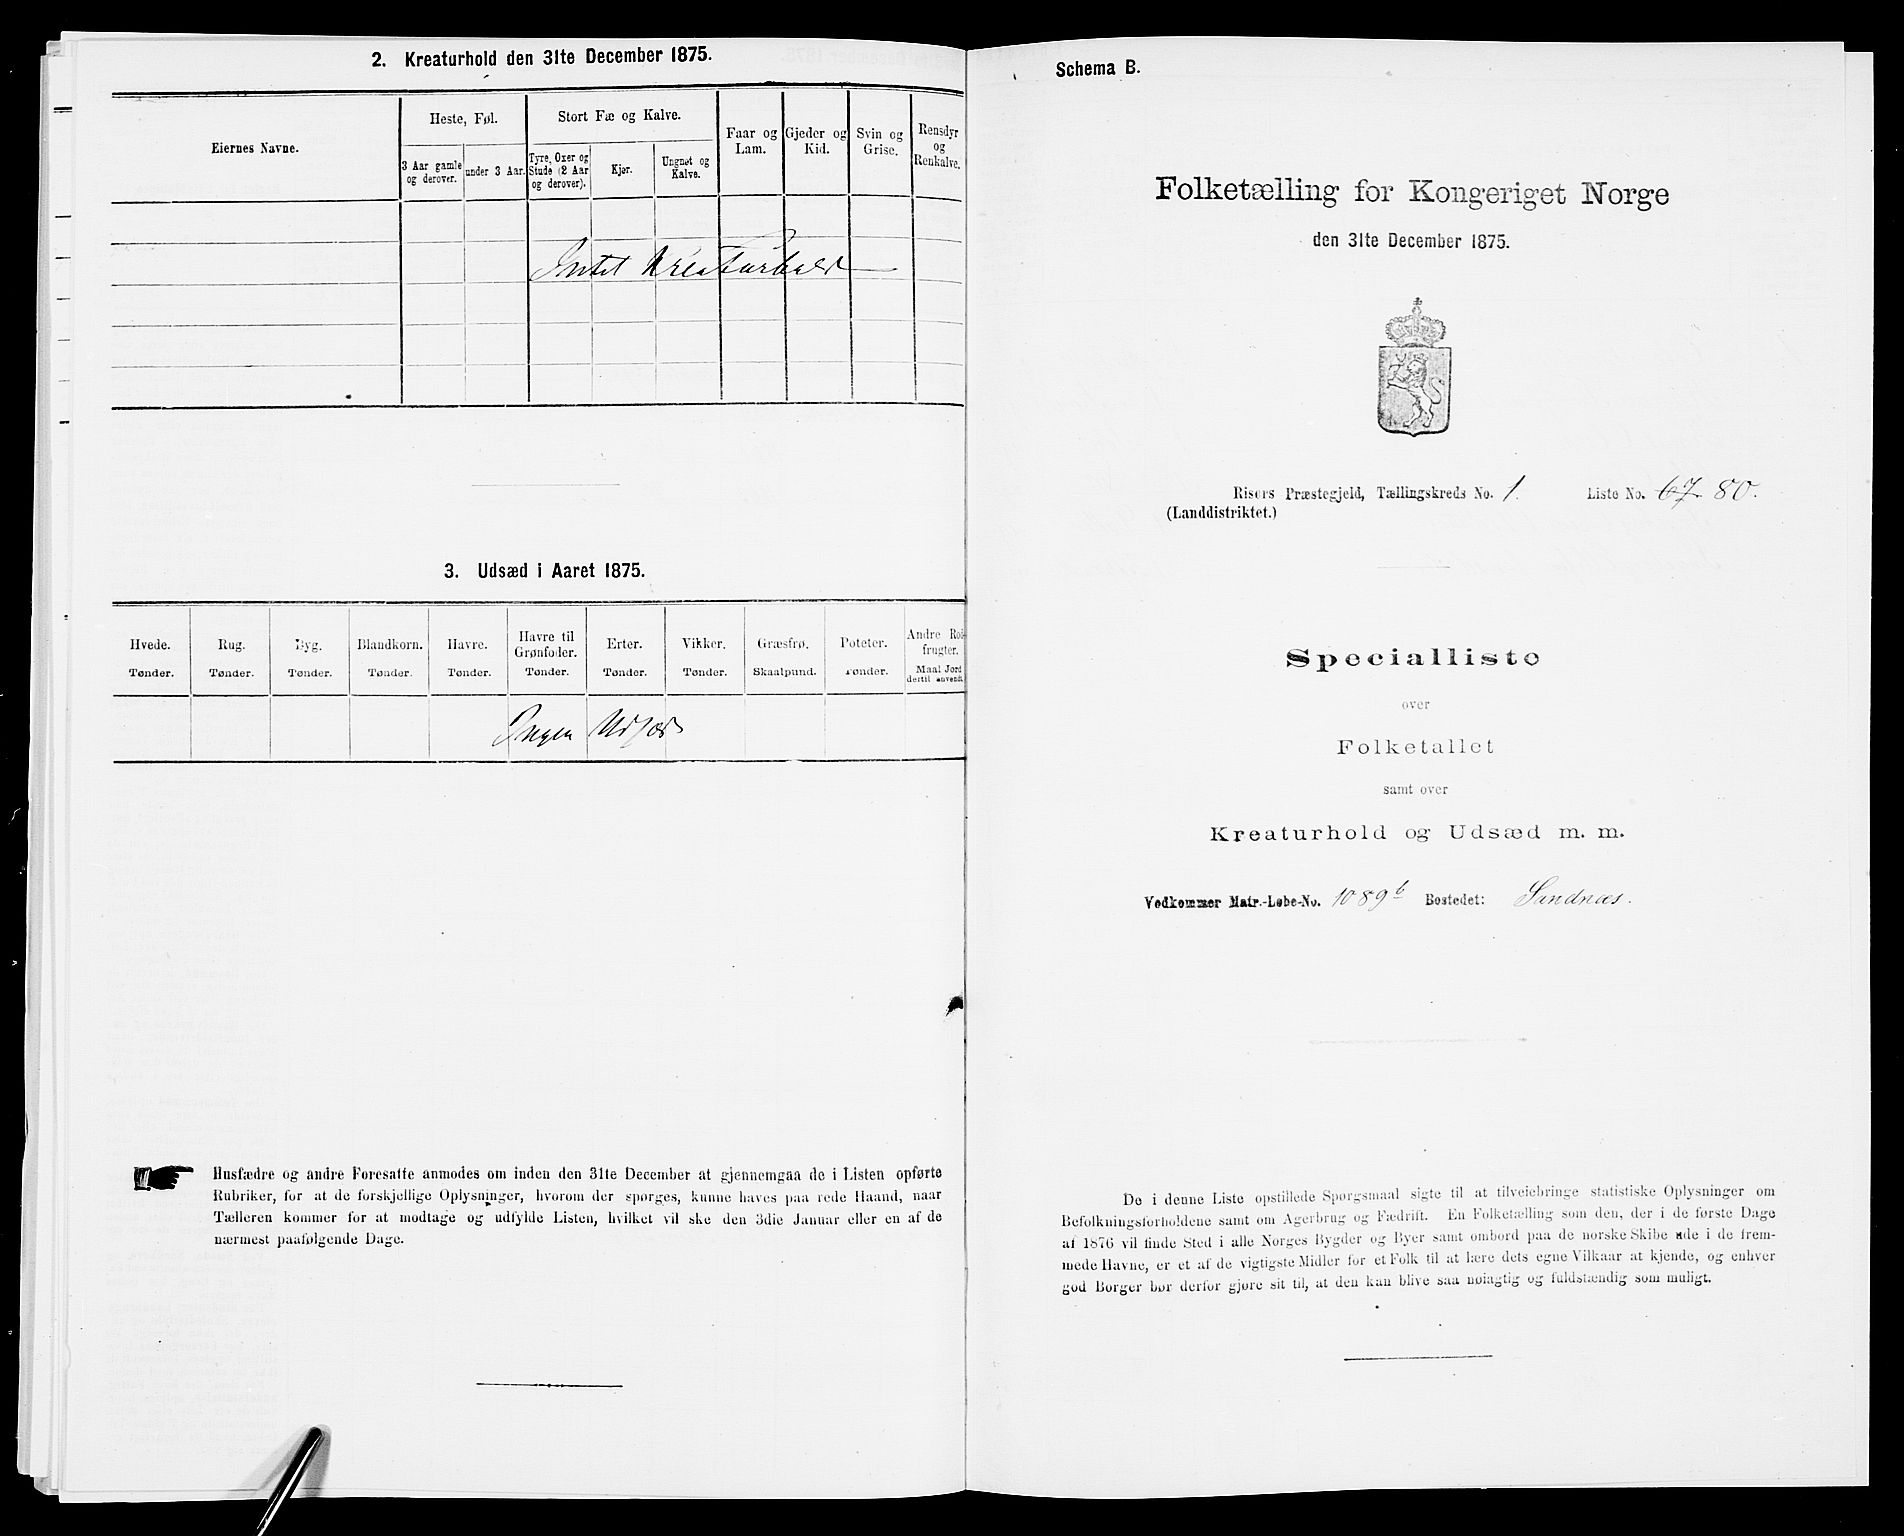 2. Kreaturhold den 31te December 1875.
Eiernes Navne.
Heste, Føl.
3 Aar gamle og derover.
under 3 Aar.
Stort Fæ og Kalve.
Tyre, Oxer og Stude (2 Aar og derover).
Kjør.
Ungnøt og Kalve.
Faar og Lam.
Gjeder og Kid.
Svin og Grise.
Rensdyr og Renkalve.
Intet Kreaturhold
3. Udsæd i Aaret 1875.
Hvede. Tønder.
Rug. Tønder.
Byg. Tønder.
Blandkorn. Tønder.
Havre. Tønder.
Havre til Grønfoder. Tønder.
Erter. Tønder.
Vikker. Tønder.
Græsfrø. Skaalpund.
Poteter. Tønder.
Andre Rodfrugter. Maal Jord dertil anvendt
Ingen Udsæd
Husfædre og andre Foresatte anmodes om inden den 31te December at gjennemgaa de i Listen opførte
Rubriker, for at de forskjellige Oplysninger, hvorom der spørges, kunne haves paa rede Haand, naar
Tælleren kommer for at modtage og udfylde Listen, hvilket vil ske den 3die Januar eller en af de
nærmest paafølgende Dage.
Schema B.
Folketælling for Kongeriget Norge
den 31te December 1875.
Risørs Præstegjeld, Tællingskreds No. 1. Liste No. 67. 80.
(Landdistriktet.)
Specialliste
over
Folketallet
samt over
Kreaturhold og Udsæd m. m.
Vedkommer Matr.-Løbe-No. 1089b Bostedet: Sandnæs.
De i denne Liste opstillede Spørgsmaal sigte til at tilveiebringe statistiske Oplysninger om
Befolkningsforholdene samt om Agerbrug og Fædrift. En Folketælling som den, der i de første Dage
af 1876 vil finde Sted i alle Norges Bygder og Byer samt ombord paa de norske Skibe ude i de frem-
mede Havne, er et af de vigtigste Midler for et Folk til at lære dets egne Vilkaar at kjende, og enhver
god Borger bør derfor gjøre sit til, at den kan blive saa nøiagtig og fuldstændig som muligt.